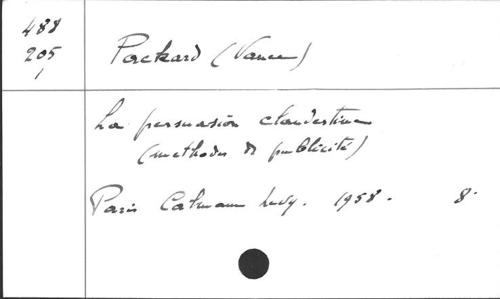 488
205
1
Packard (Vance)
La persuasion clandestine
(methodes de publicité)
Paris Calmann Levy. 1958. 8.